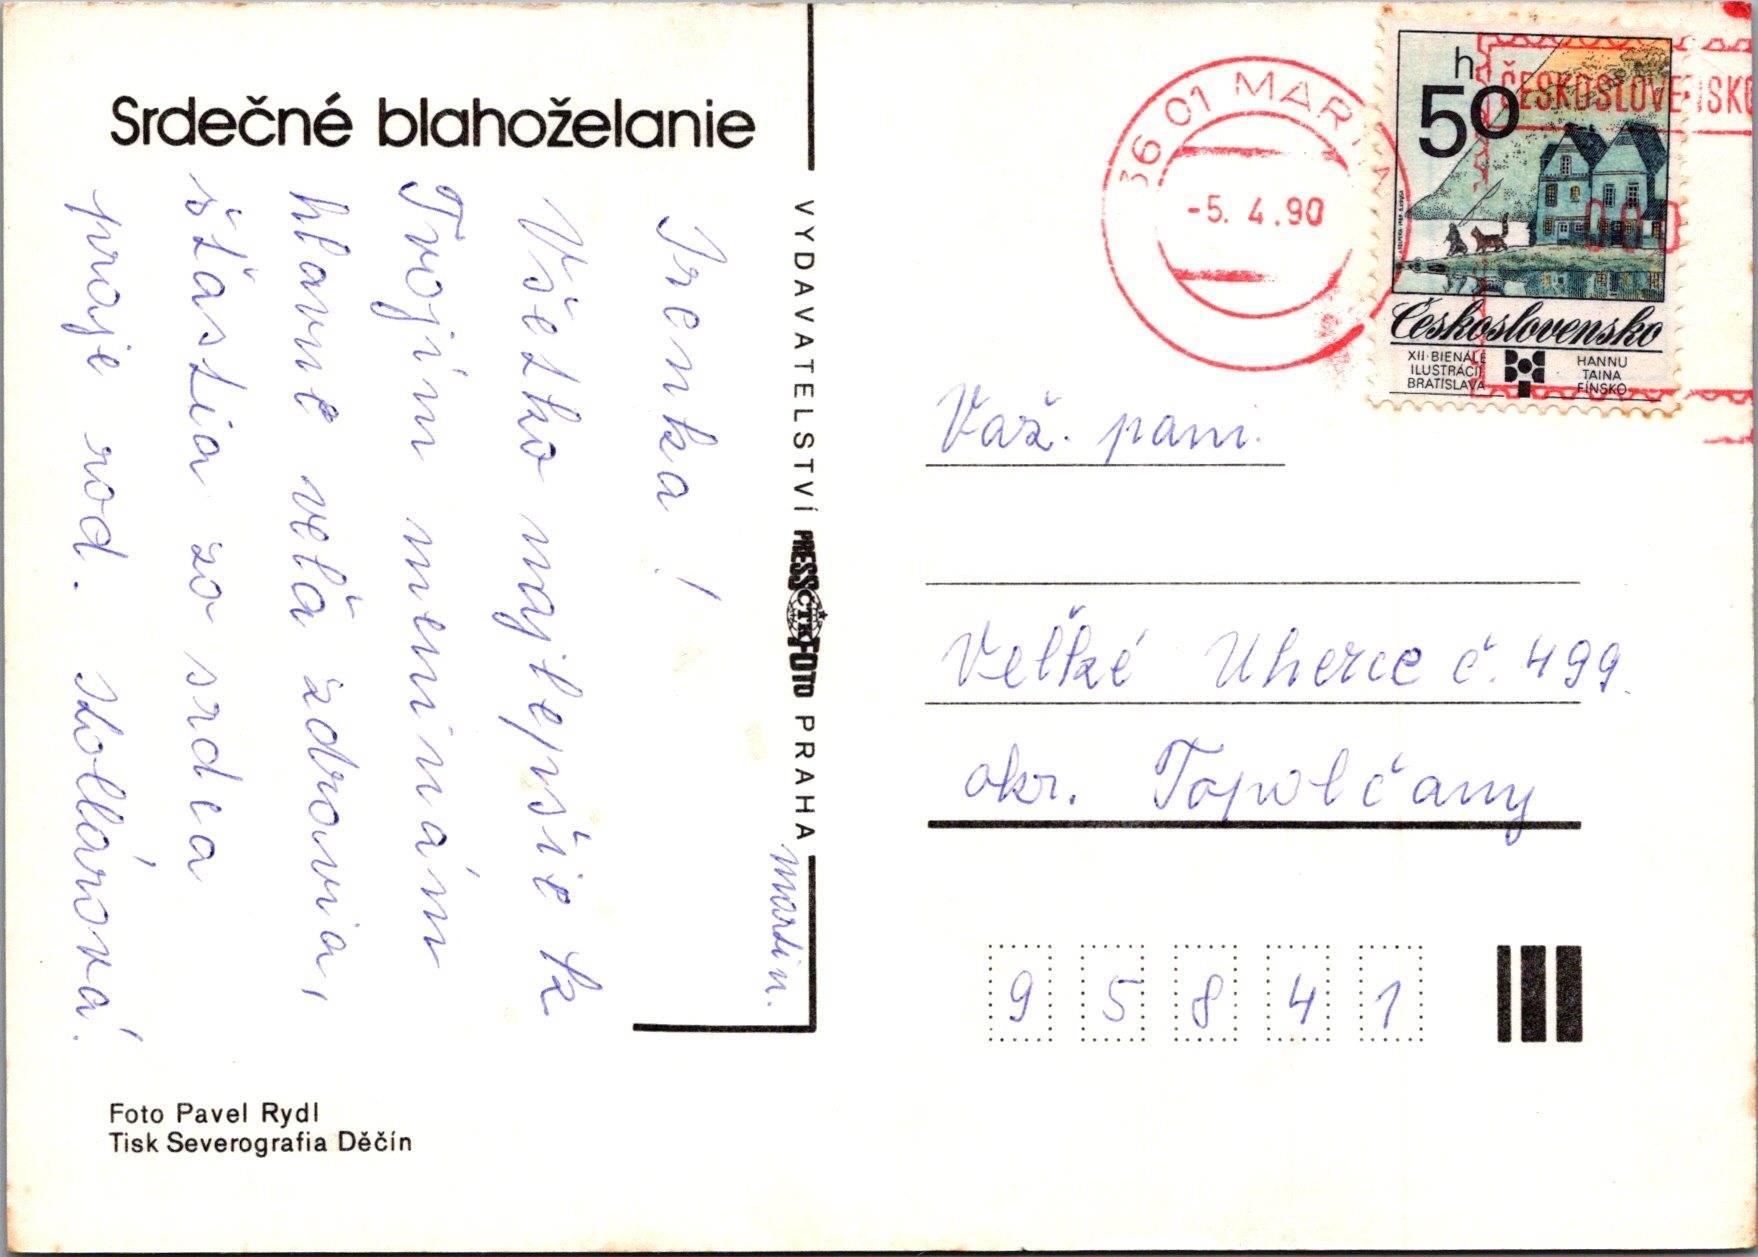 Srdečné blahoželanie
Martin.
Irenka!
Všetko najlepšie k
Tvojim meninám
hlavne veľa zdravia,
šťastia zo srdca
praje rod. Kollárová.
Foto Pavel Rydl
Tisk Severografia Děčín
VYDAVATELSTVÍ PRESSFOTO PRAHA
ČTK
36 01 MARTIN
-5. 4.90
ČESKOSLOVENSKO
50 h
Československo
XII. BIENÁLE
ILUSTRÁCIÍ
BRATISLAVA
HANNU
TAINA
FÍNSKO
Váž. pani.
Veľké Uherce č. 499.
okr. Topolčany
95841